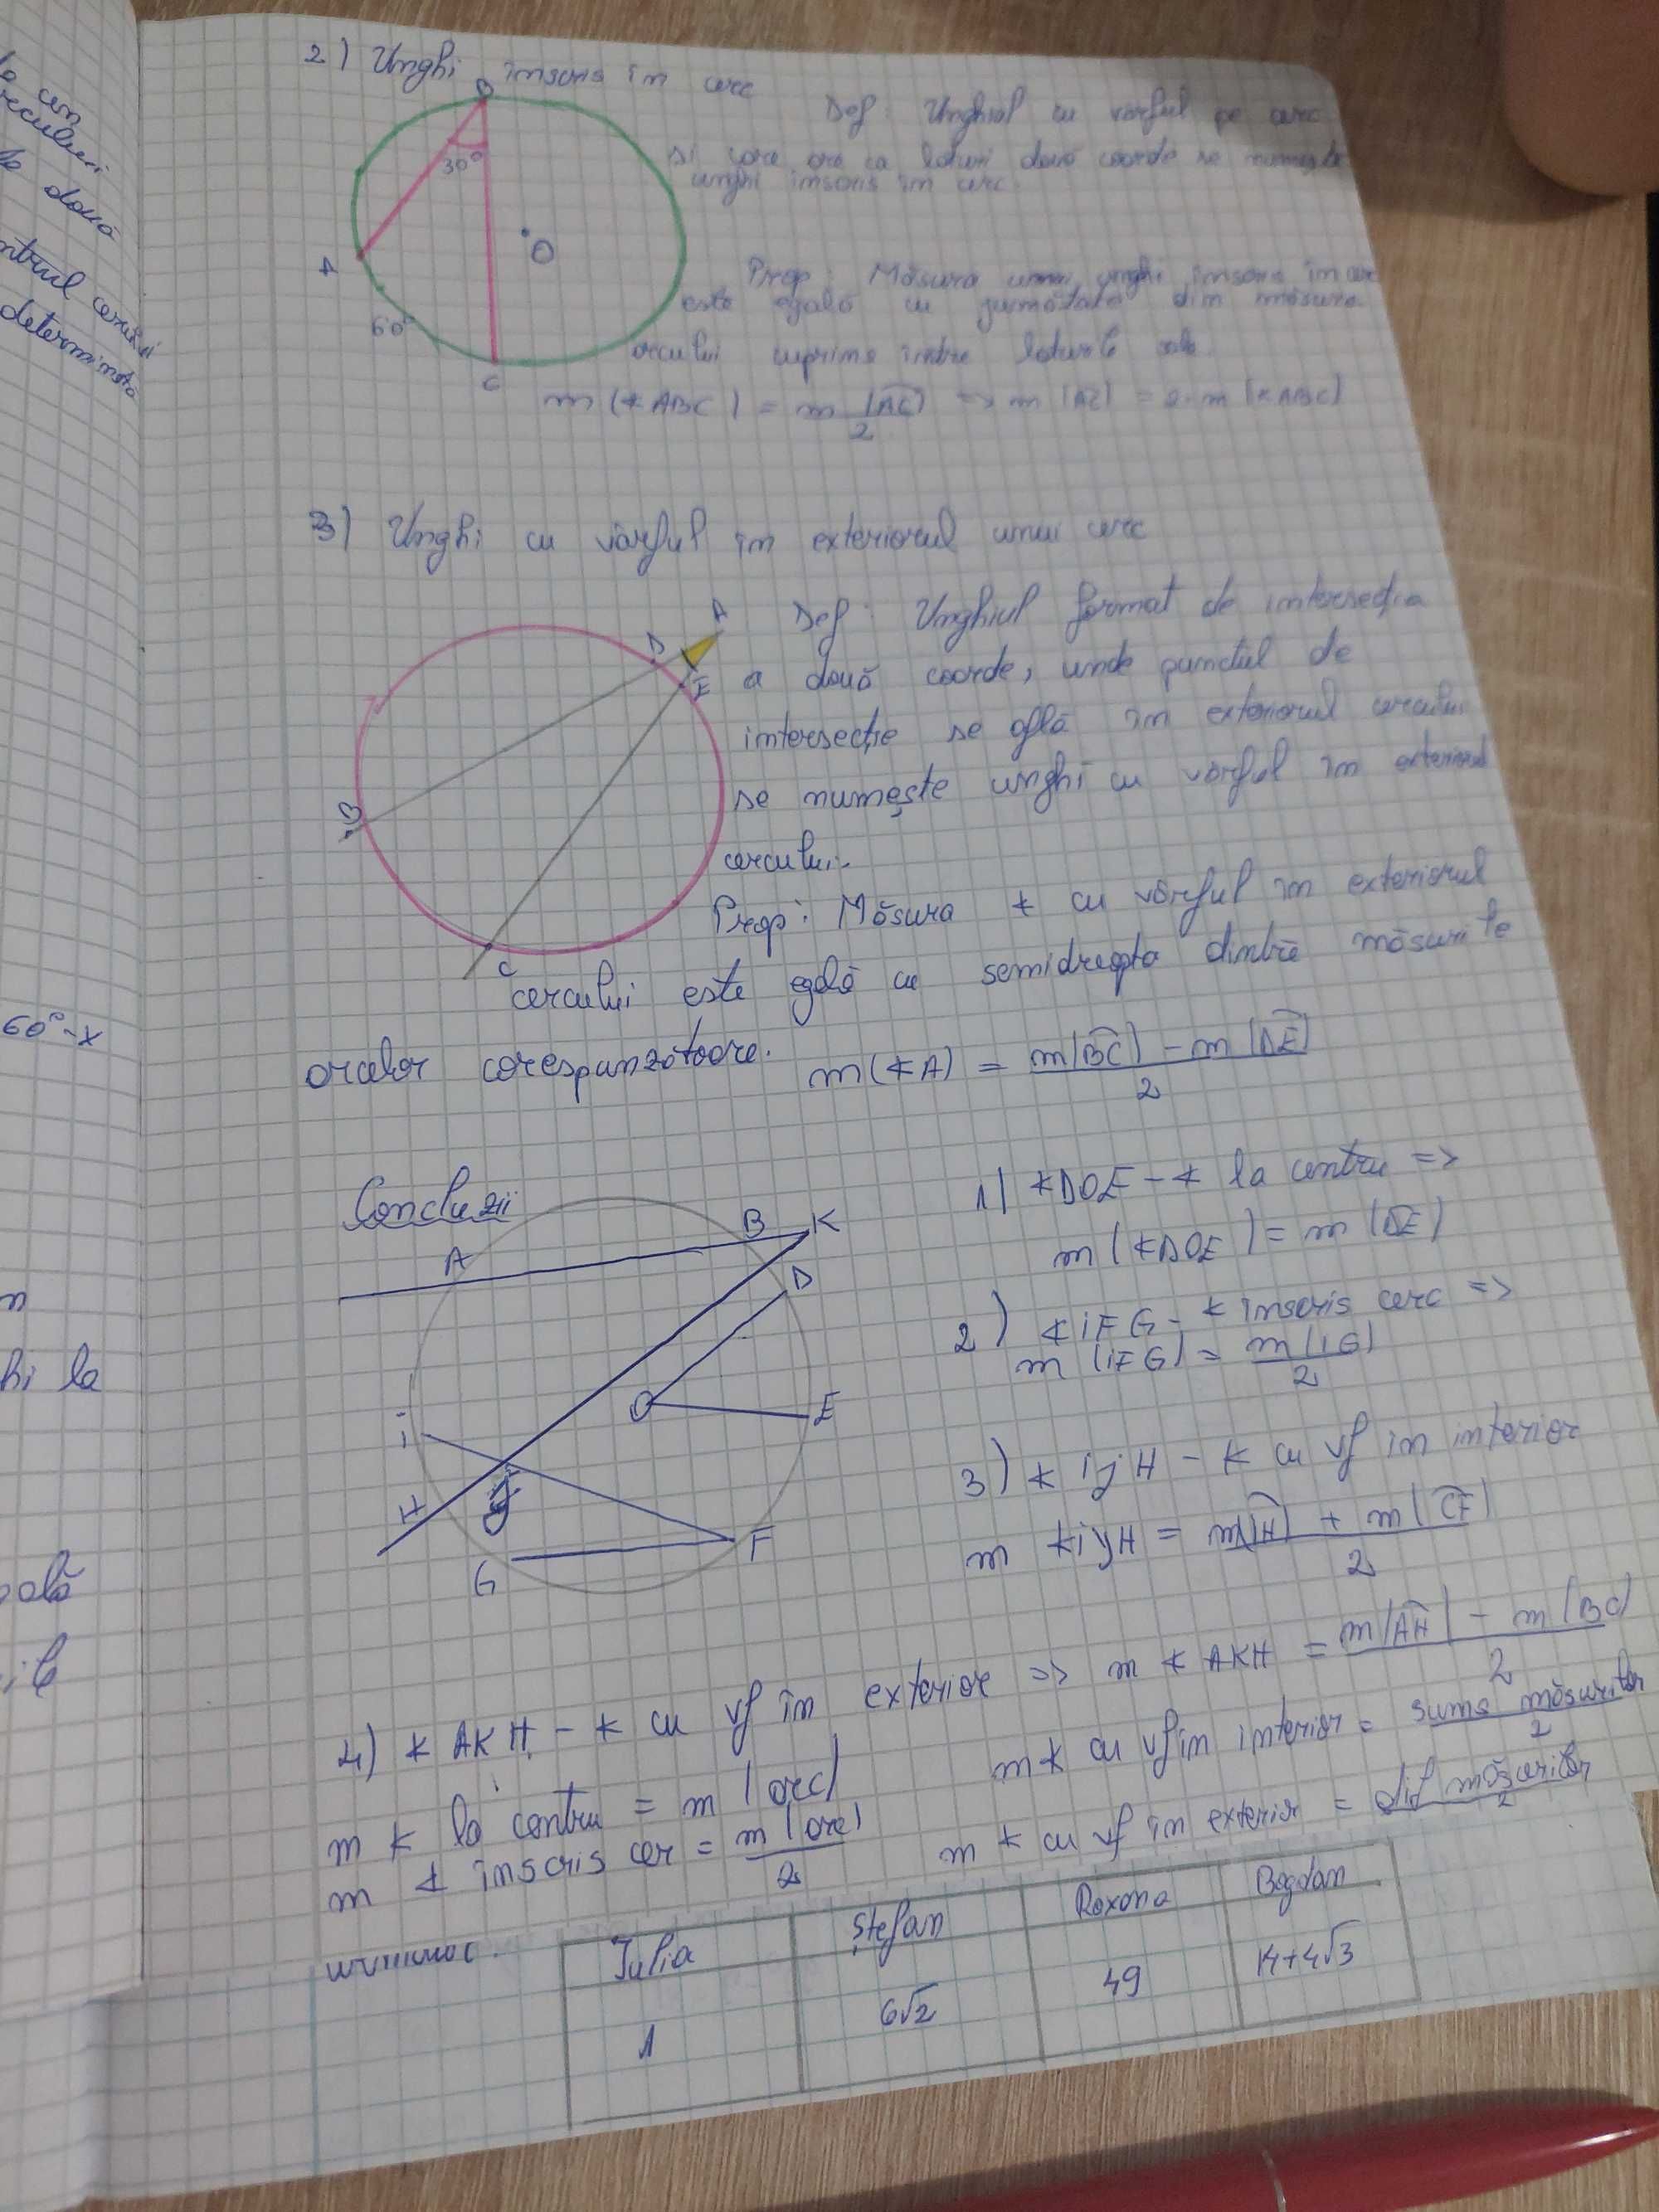 le un
recului
le două
ntrul cercului
determinată
60°-x
n
hi la
ală
ile
2) Unghi înscris în cerc
Def: Unghiul cu vârful pe cerc
și care are ca laturi două coarde se numește
unghi înscris în cerc.
B
30°
O
A
60°
C
Prop: Măsura unui unghi înscris în cerc
este egală cu jumătate din măsura
arcului cuprins între laturile sale
m (∢ABC) = m (AC) / 2 => m (AC) = 2·m (∢ABC)
3) Unghi cu vârful în exteriorul unui cerc
A
D
E
B
C
Def: Unghiul format de intersecția
a două coarde, unde punctul de
intersecție se află în exteriorul cercului
se numește unghi cu vârful în exteriorul
cercului.
Prop: Măsura ∢ cu vârful în exteriorul
cercului este egală cu semidreapta dintre măsurile
arcelor corespunzătoare. m(∢A) = m(BC) - m(DE) / 2
Concluzii
A
B
K
D
O
E
i
H
j
G
F
1) ∢DOE - ∢ la centru =>
m (∢DOE) = m (DE)
2) ∢iFG - ∢ înscris cerc =>
m (iFG) = m (IG) / 2
3) ∢ ijH - ∢ cu vf în interior
m ∢ijH = m(iH) + m(CF) / 2
4) ∢ AKH - ∢ cu vf în exterior => m ∢ AKH = m(AH) - m(BC) / 2
m ∢ la centru = m (arc)
m ∢ înscris cer = m (arc) / 2
m∢ cu vf în interior = suma măsurilor / 2
m ∢ cu vf în exterior = dif măsurilor / 2
Iulia Ștefan Roxana Bogdan
1 6√2 49 14+4√3